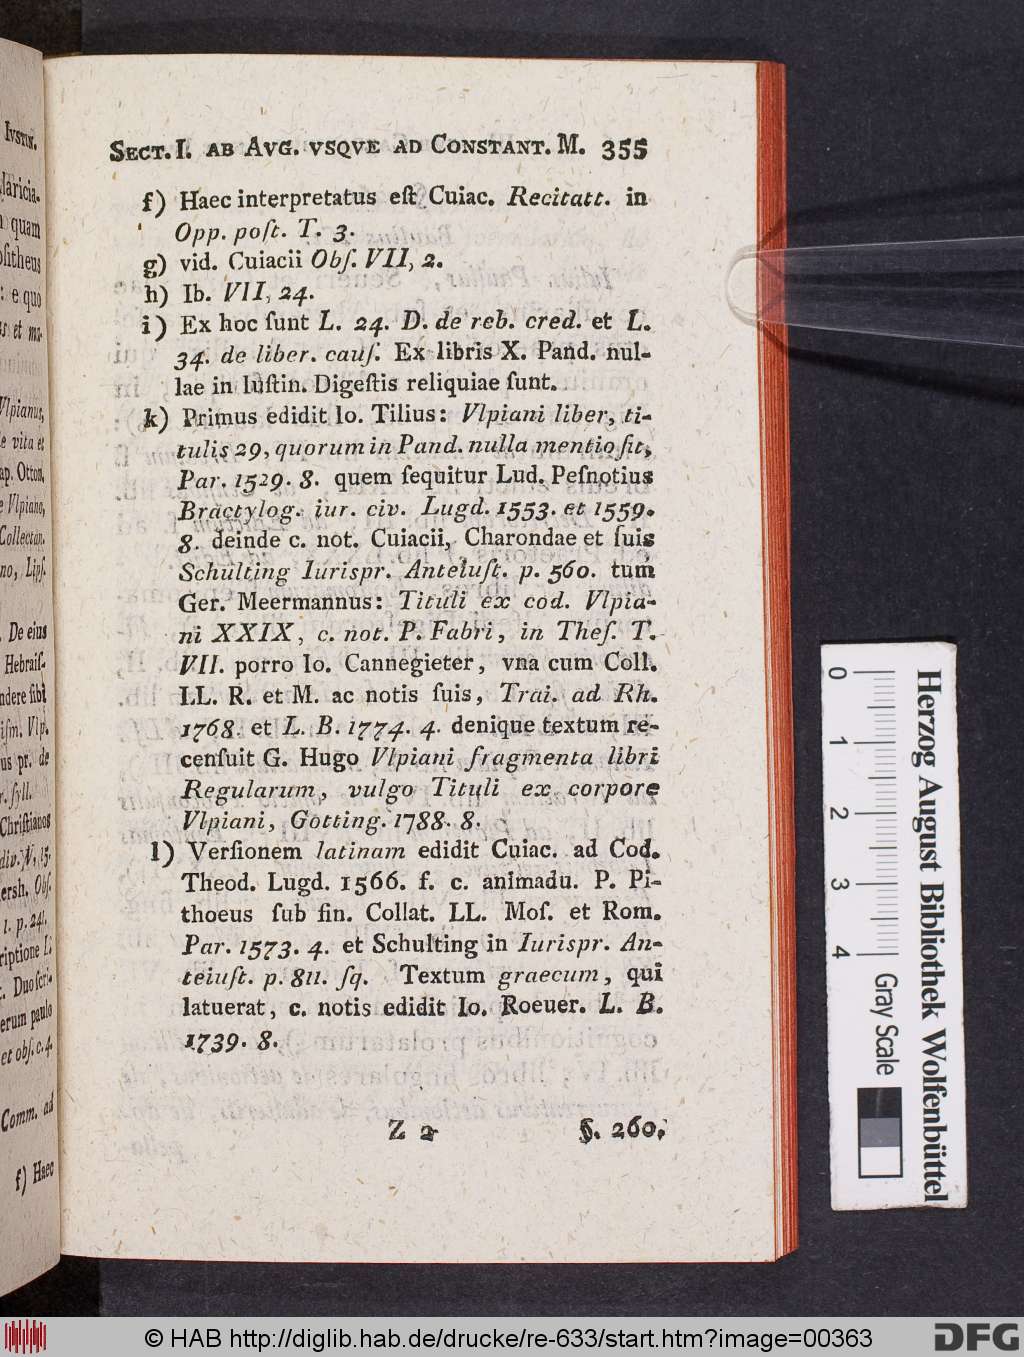 SECT. I. AB AVG. VSQVE AD CONSTANT. M. 355
f) Haec interpretatus eſt Cuiac. Recitatt. in
Opp. poſt. T. 3.
g) vid. Cuiacii Obſ. VII, 2.
h) Ib. VII, 24.
i) Ex hoc ſunt L. 24. D. de reb. cred. et L.
34. de liber. cauſ. Ex libris X. Pand. nul-
lae in Iuſtin. Digeſtis reliquiae ſunt.
k) Primus edidit Io. Tilius: Vlpiani liber, ti-
tulis 29, quorum in Pand. nulla mentio ſit,
Par. 1529. 8. quem ſequitur Lud. Peſnotius
Bractylog. iur. civ. Lugd. 1553. et 1559.
8. deinde c. not. Cuiacii, Charondae et ſuis
Schulting Iurispr. Anteiuſt. p. 560. tum
Ger. Meermannus: Tituli ex cod. Vlpia-
ni XXIX, c. not. P. Fabri, in Theſ. T.
VII. porro Io. Cannegieter, vna cum Coll.
LL. R. et M. ac notis ſuis, Trai. ad Rh.
1768. et L. B. 1774. 4. denique textum re-
cenſuit G. Hugo Vlpiani fragmenta libri
Regularum, vulgo Tituli ex corpore
Vlpiani, Gotting. 1788. 8.
l) Verſionem latinam edidit Cuiac. ad Cod.
Theod. Lugd. 1566. f. c. animadu. P. Pi-
thoeus ſub fin. Collat. LL. Moſ. et Rom.
Par. 1573. 4. et Schulting in Iurispr. An-
teiuſt. p. 811. ſq. Textum graecum, qui
latuerat, c. notis edidit Io. Roeuer. L. B.
1739. 8.
Z 2 §. 260.
IVSTIN.
quam
ſitheus
: e quo
et ma-
Vlpianus,
de vita et
ap. Otton.
e Vlpiano,
Collectan.
no, Lipſ.
De eius
Hebraiſ-
ndere ſibi
iſm. Vlp.
us pr. de
r. ſyll.
Chriſtianos
div. IV, 15.
erſh. Obſ.
l. p. 241.
riptione L.
Duo ſcri-
erum paulo
et obſ. c. 4.
Comm. ad
f) Haec
Herzog August Bibliothek Wolfenbüttel
0 1 2 3 4 Gray Scale
© HAB http://diglib.hab.de/drucke/re-633/start.htm?image=00363
DFG